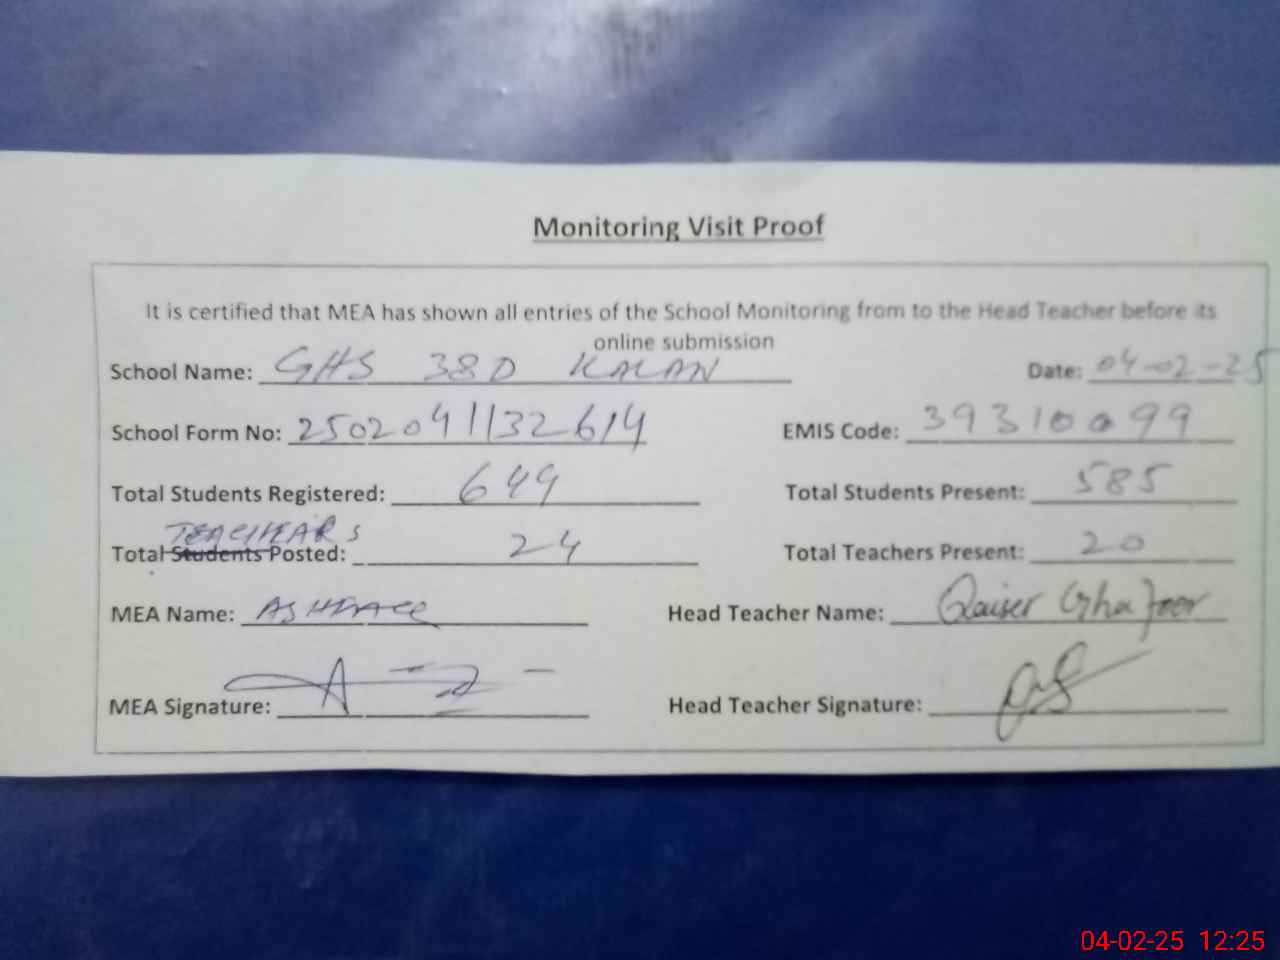 Monitoring Visit Proof
It is certified that MEA has shown all entries of the School Monitoring from to the Head Teacher before its
online submission
School Name: GHS 38D KALAN Date: 04-02-25
School Form No: 2502041132614 EMIS Code: 39310099
Total Students Registered: 649 Total Students Present: 585
TEACHEARS
Total Students Posted: 24 Total Teachers Present: 20
MEA Name: Head Teacher Name: Qaiser Ghafoor
MEA Signature: Head Teacher Signature:
04-02-25 12:25